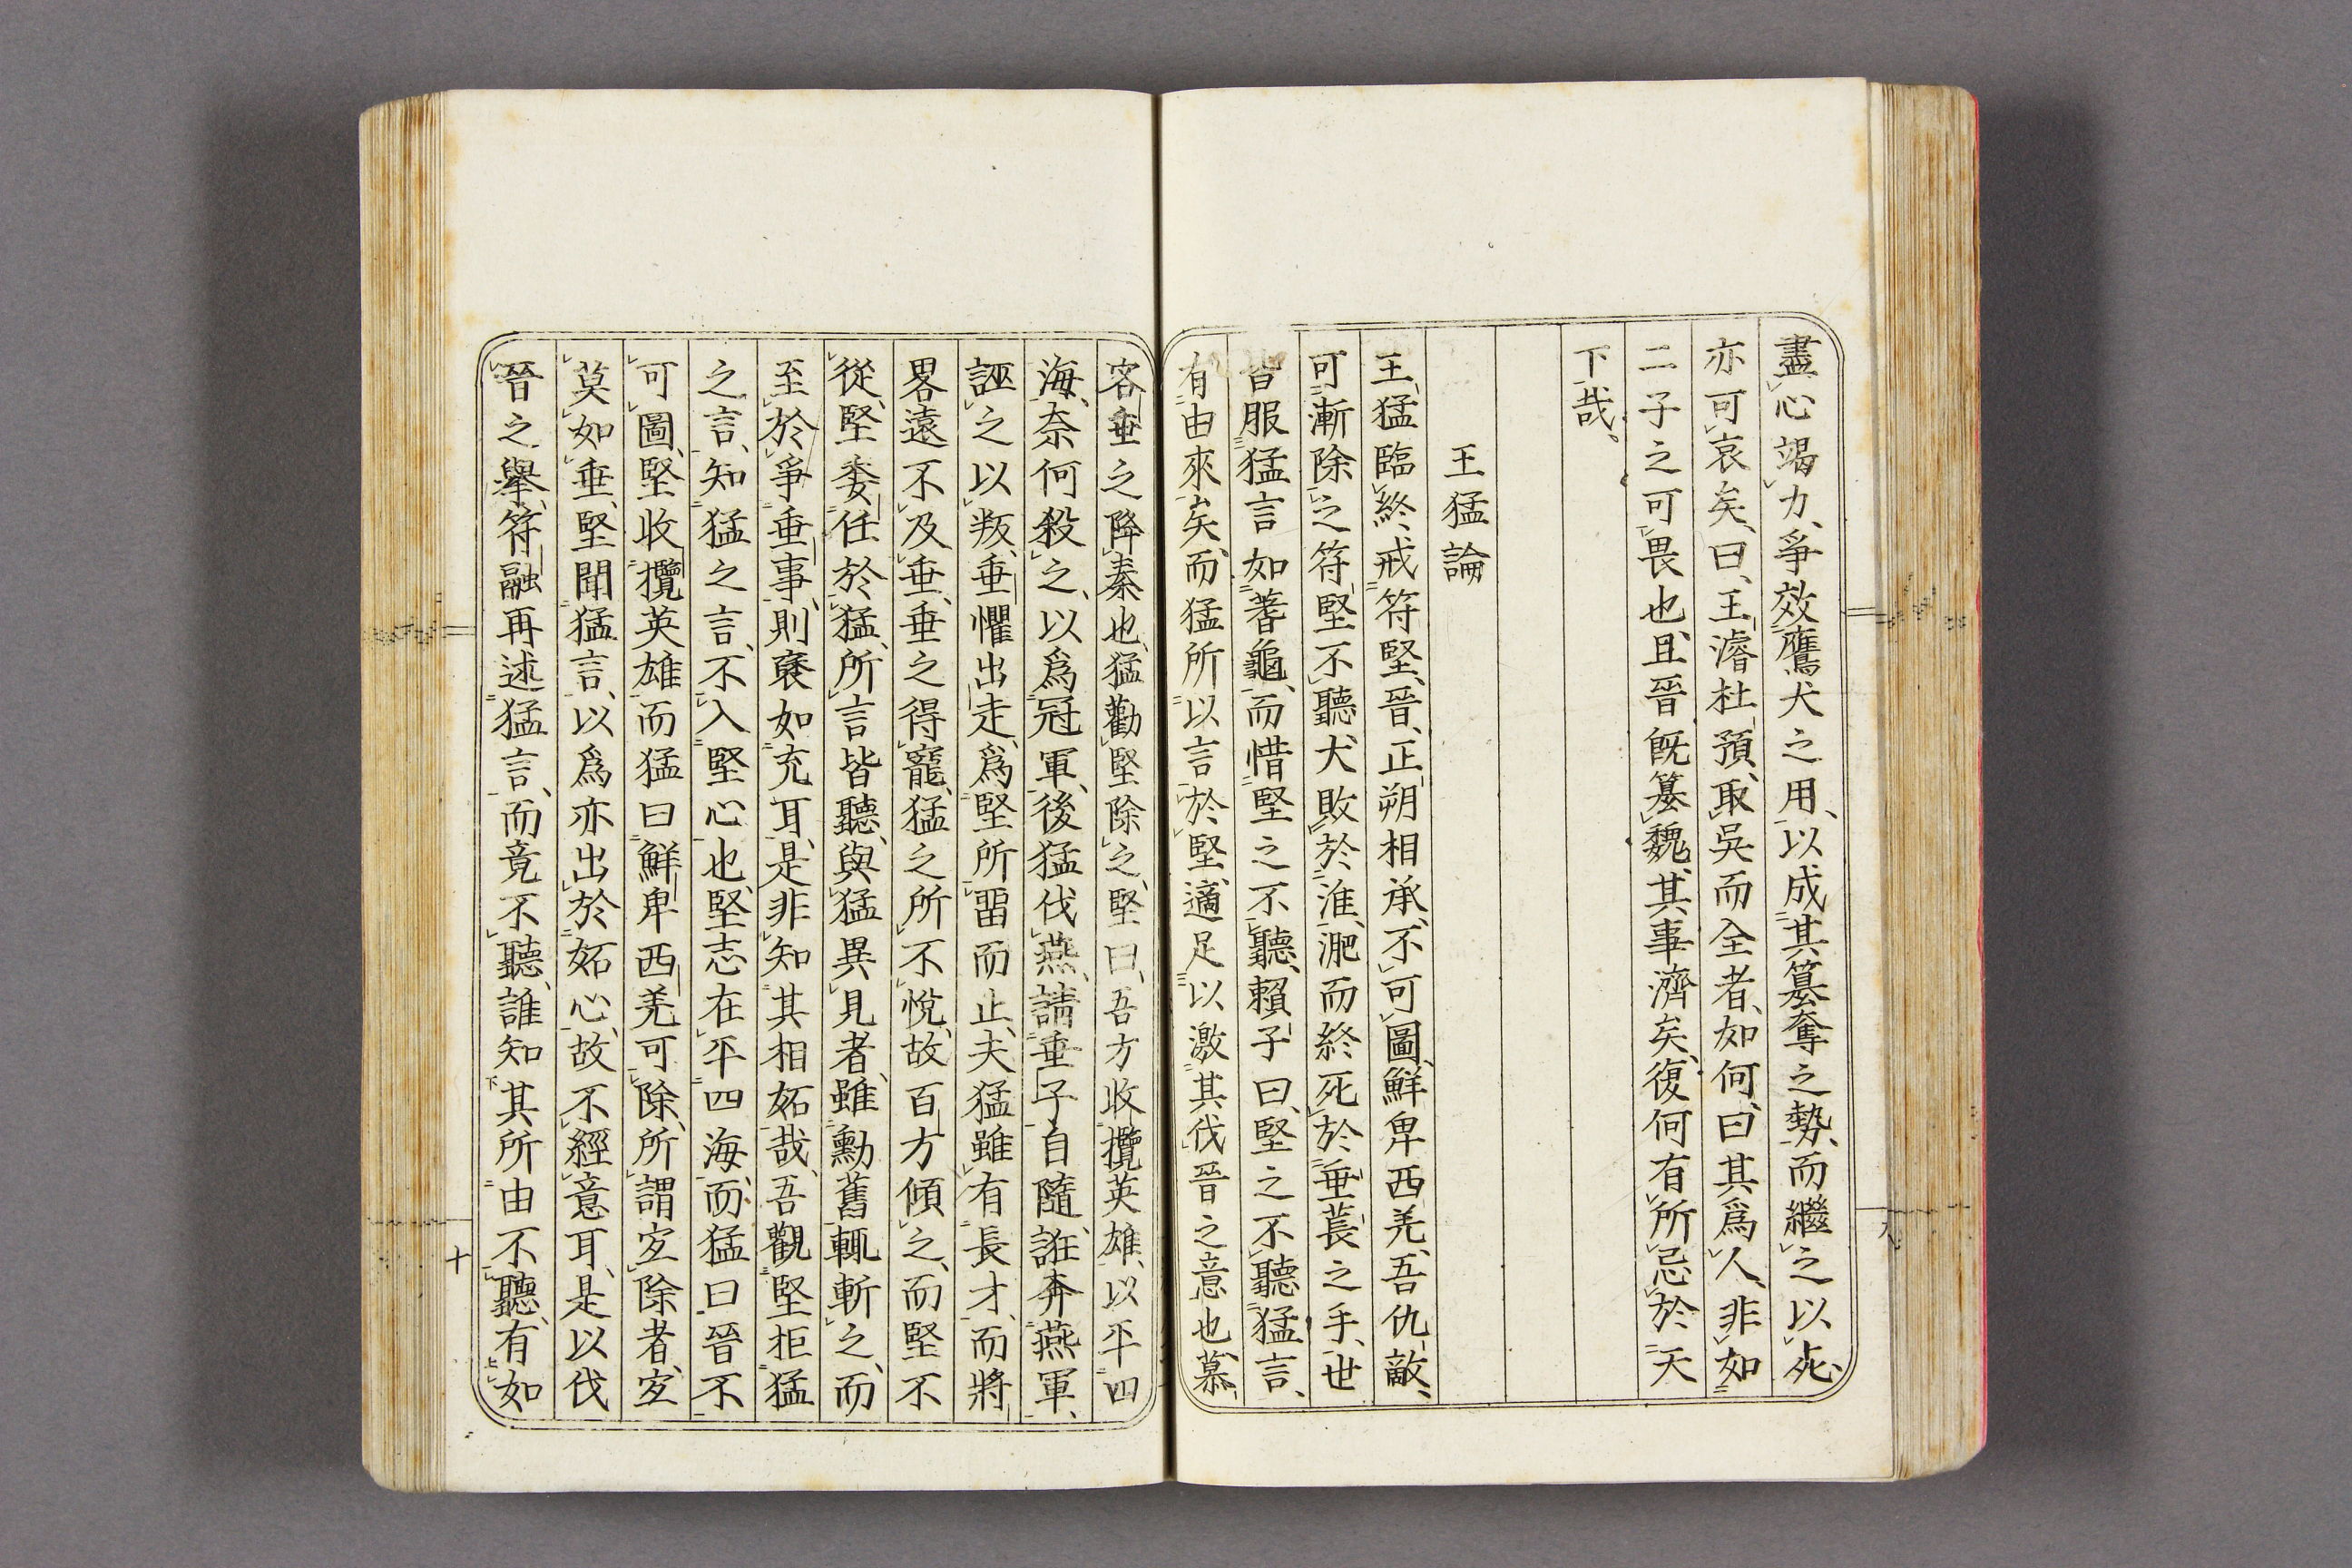 盡心竭力、爭效鷹犬之用、以成其簒奪之勢、而繼之以死、
亦可哀矣、曰、王濬杜預、取吳而全者、如何、曰其爲人、非如
二子之可畏也、且晉既簒魏、其事濟矣、復何有所忌於天
下哉、
王猛論
王猛臨終、戒符堅、晉、正朔相承、不可圖、鮮卑西羌、吾仇敵、
可漸除之、符堅不聽、犬敗於淮、淝而終死於垂萇之手、世
皆服猛言如蓍龜、而惜堅之不聽、賴子曰、堅之不聽猛言、
有由來矣、而猛所以言於堅、適足以激其伐晉之意也、慕
容垂之降秦也、猛勸堅除之、堅曰、吾方收攬英雄、以平四
海、奈何殺之、以爲冠軍、後猛伐燕、請垂子自隨、誑奔燕軍、
誣之以叛、垂懼出走、爲堅所畱而止、夫猛雖有長才、而將
畧遠不及垂、垂之得寵、猛之所不悅、故百方傾之、而堅不
從、堅委任於猛、所言皆聽、與猛異見者、雖勳舊輒斬之、而
至於爭垂事、則襃如充耳、是非知其相妬哉、吾觀堅拒猛
之言、知猛之言、不入堅心也、堅志在平四海、而猛曰晉不
可圖、堅收攬英雄而猛曰鮮卑西羌可除、所謂宐除者、宐
莫如垂、堅聞猛言、以爲亦出於妬心、故不經意耳、是以伐
晉之舉、符融再述猛言、而竟不聽、誰知其所由不聽、有如
九
十